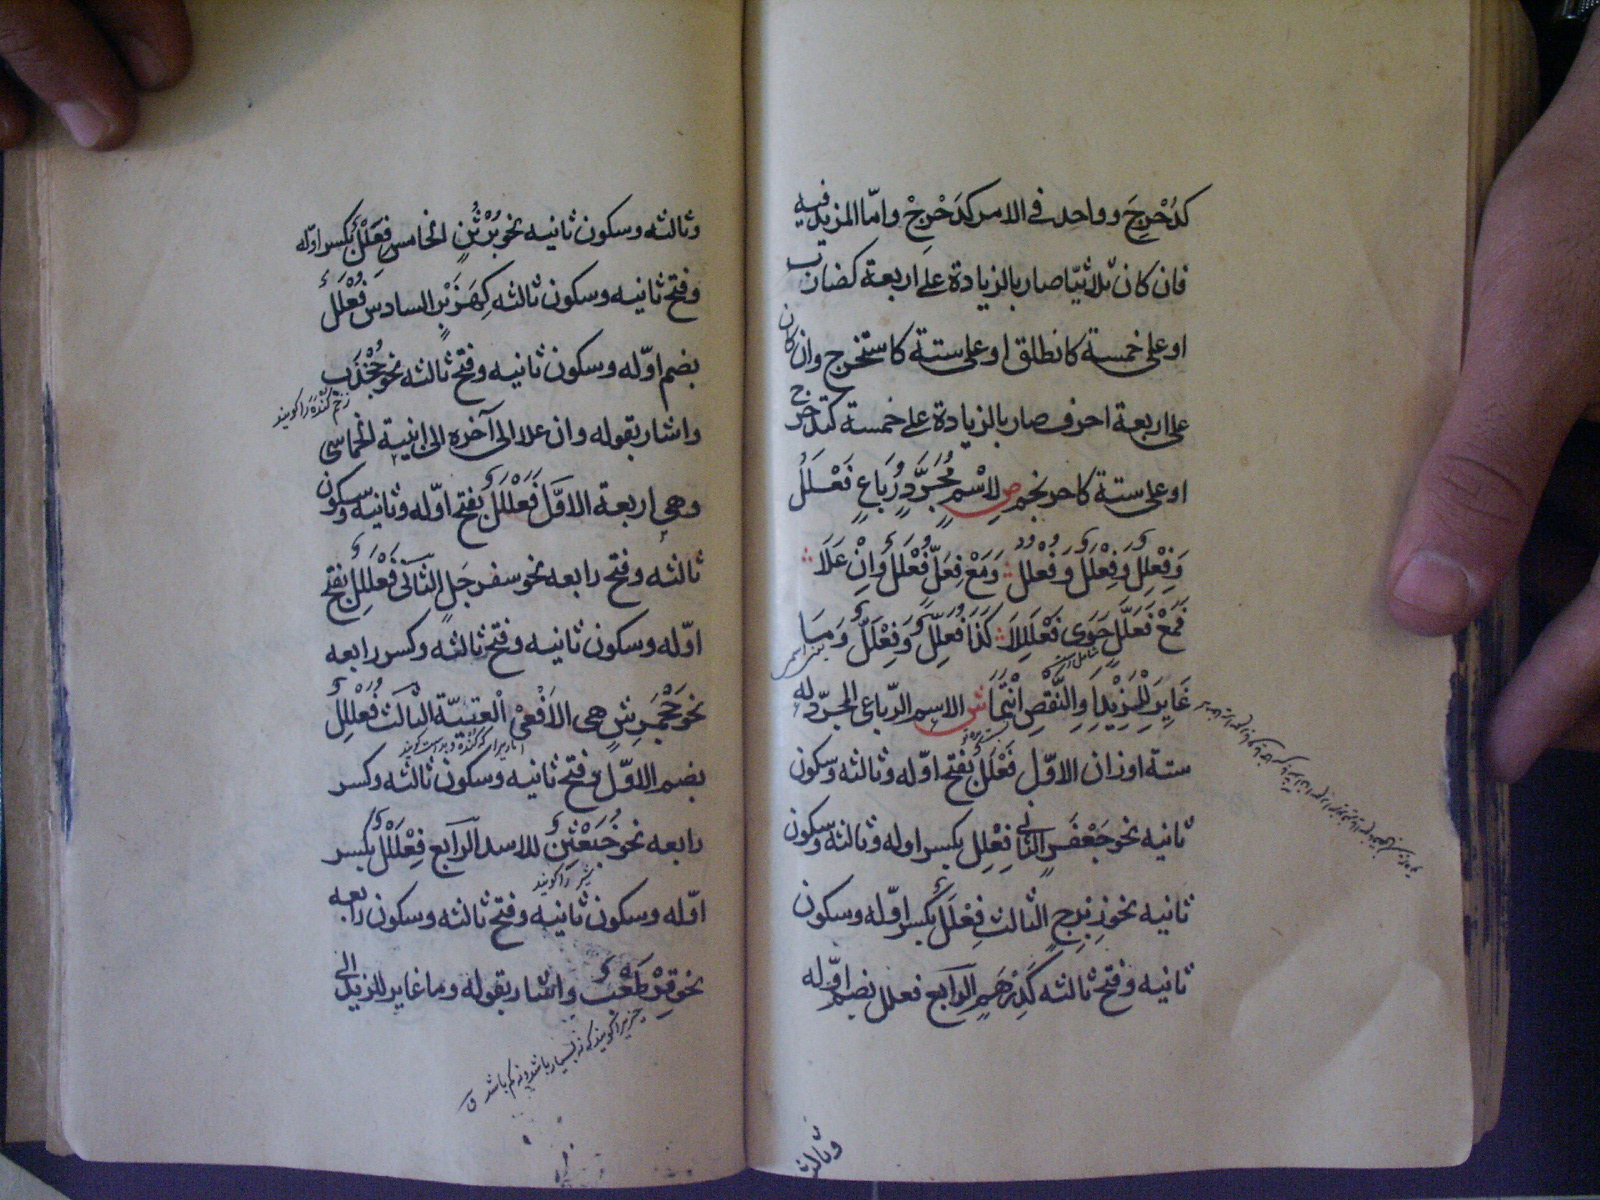 كدُحْرِجَ وواحد في الامر كدَحْرِجْ وامّا المزيد فيه
فان كان ثلاثيّا صار بالزيادة على اربعة كضارب
او على خمسة كانطلق او على ستة كاستخرج وان كان
على اربعة احرف صار بالزيادة على خمسة كتدحرج
او على ستة كاحرنجم ص لِاسْمٍ مُجَرَّدٍ رُبَاعٍ فَعْلَلُ
وَفِعْلِلٌ وَفِعْلَلٌ وَفُعْلُلُ وَمَعْ فِعَلٍّ فُعْلَلٌ وَاِنْ عَلَا
فَمَعْ فَعَلَّلٍ حَوَى فَعْلَلِلَا كَذَا فُعَلِّلٌ وَفِعْلَلٌّ وَمَا
غَايَرَ لِلْمَزِيْدِ اَوِ النَّقْصِ انْتَمَا ش الاسم الرّباعي المجرّد له
ستة اوزان الاوّل فَعْلَلٌ بفتح اوّله وثالثه وسكون
ثانيه نحو جَعْفَرٍ الثاني فِعْلِلٌ بكسر اوله وثالثه وسكون
ثانيه نحو زِبْرِجٍ الثالث فِعْلَلٌ بكسر اوّله وسكون
ثانيه وفتح ثالثه كَدِرْهَمٍ الرابع فعلل بضم اوّله
وثالثه
وثالثه وسكون ثانيه نحو بُرْثُنٍ الخامس فِعَلْلٌ بكسر اوّله
وفتح ثانيه وسكون ثالثه كِهِزَبْرٍ السادس فُعْلَلٌ
بضم اوّله وسكون ثانيه وفتح ثالثه نحو جُخْدَب
واشار بقوله وان علا الى آخره الى ابنية الخماسى
وهي اربعة الاوّل فَعَلْلَلٌ بفتح اوّله وثانيه وسكون
ثالثه وفتح رابعه نحو سفرجَلٍ الثّانى فَعْلَلِلٌ بفتح
اوّله وسكون ثانيه وفتح ثالثه وكسر رابعه
نحو جَحْمَرِشٍ هى الاَفْعىْ الْعتيبيّة الثالث فُعَلْلِلٌ
بضم الاوّل وفتح ثانيه وسكون ثالثه وكسر
رابعه نحو خُبَعْثِنٌ للاسد الرّابع فِعْلَلْلٌ بكسر
شير را گويند
اوّله وسكون ثانيه وفتح ثالثه وسكون رابعه
نحو قِرْطَعْبٌ واشار بقوله وما غاير للزيد الى
چيزيرا گويند كه نه بسيار باشد ونه كم باشد